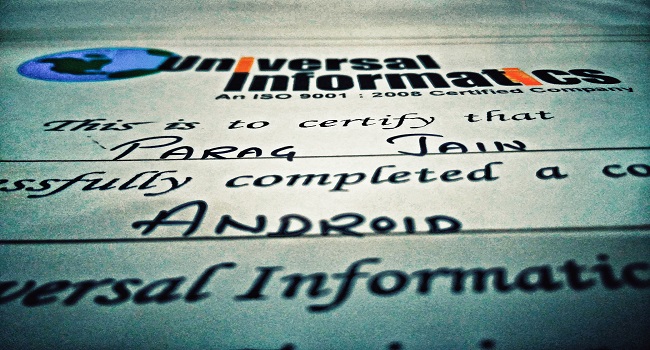 Universal
Informatics
An ISO 9001 : 2008 Certified Company
This is to certify that
PARAG JAIN
ssfully completed a co
ANDROID
versal Informatic